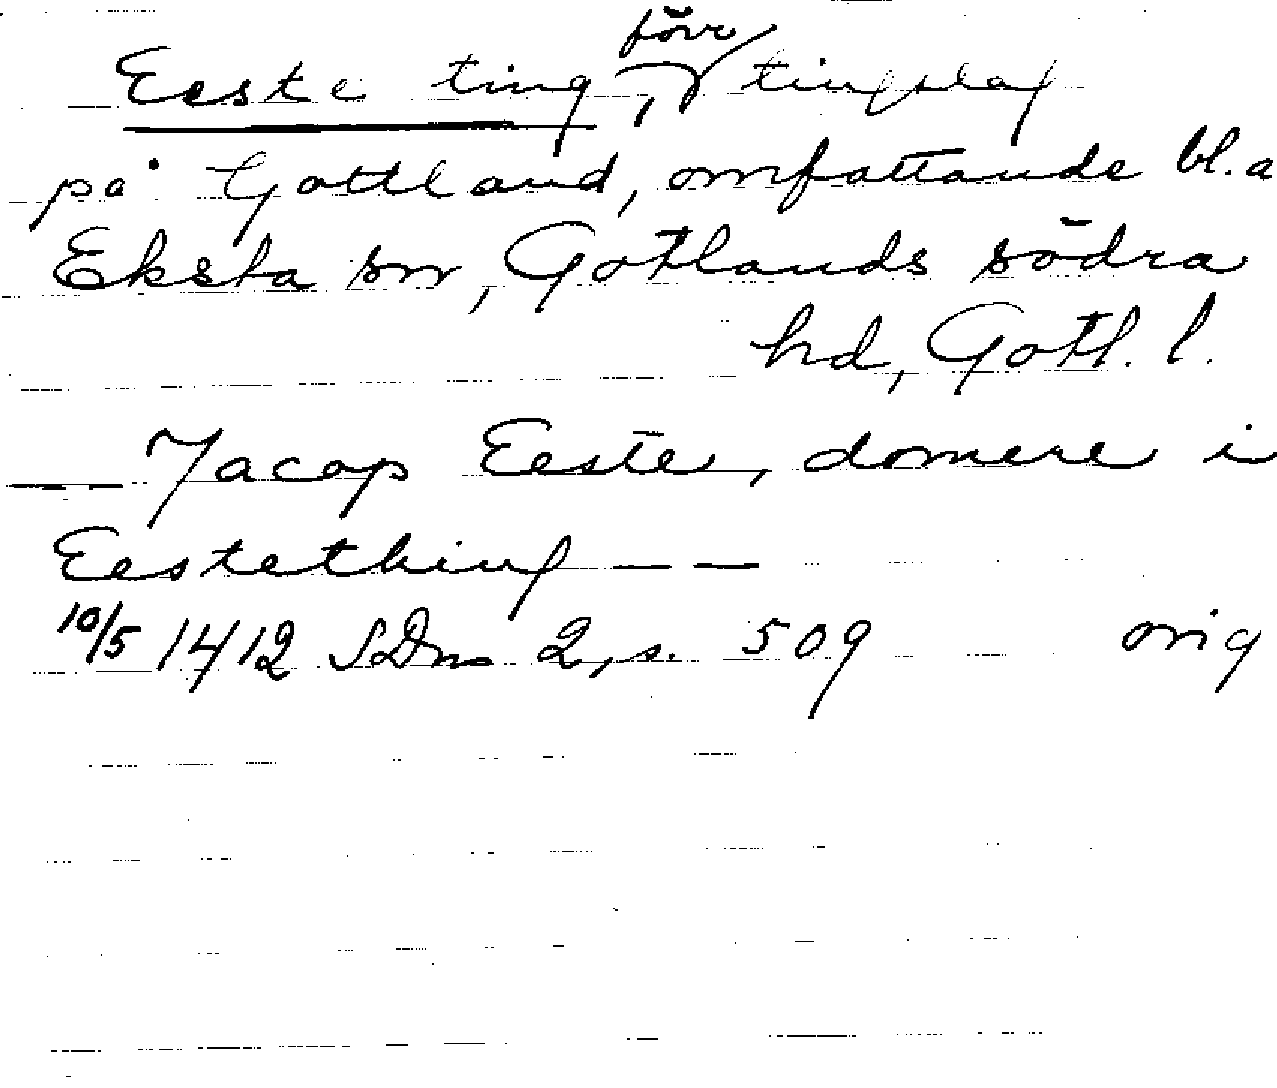 Eeste ting, förr tingslag
på Gottland, omfattande bl.a
Eksta sn, Gotlands södra
hd, Gotl. l.
— Jacop Eeste, domere i
Eestething — —
10/5 1412 SDns 2, s. 509 orig